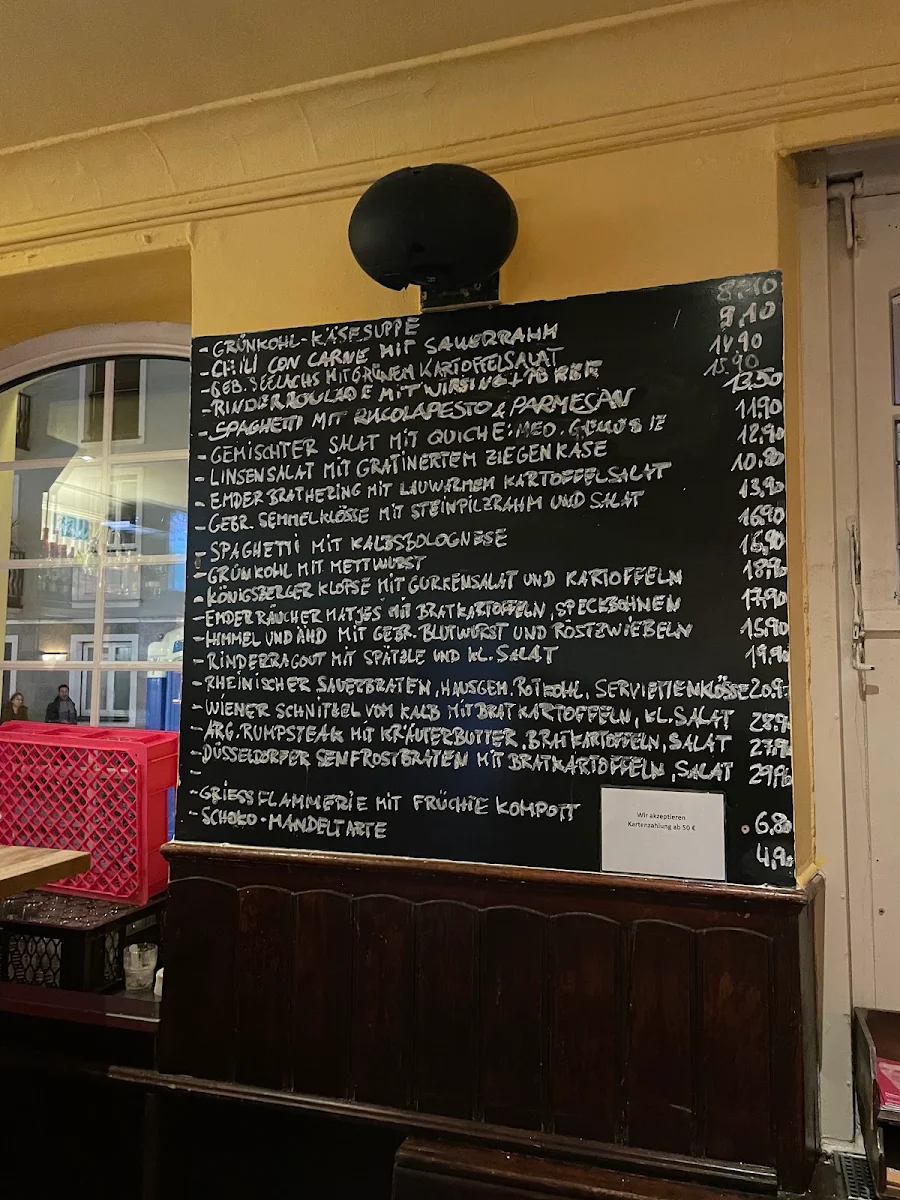 - GRÜNKOHL-KÄSESUPPE 8,10
- CHILI CON CARNE MIT SAUERRAHM 9,10
- GEB. SEELACHS MIT GRÜNEM KARTOFFELSALAT 14.90
- RINDERROULADE MIT WIRSING 15.90
- SPAGHETTI MIT RUCOLAPESTO & PARMESAN 13.50
- GEMISCHTER SALAT MIT QUICHE: MED. GEMÜSE 11.90
- LINSENSALAT MIT GRATINIERTEM ZIEGENKÄSE 12,90
- EMDER BRATHERING MIT LAUWARMEM KARTOFFELSALAT 10,80
- GEBR. SEMMELKLÖSSE MIT STEINPILZRAHM UND SALAT 13,90
- SPAGHETTI MIT KALBSBOLOGNESE 16.90
- GRÜNKOHL MIT METTWURST 16,90
- KÖNIGSBERGER KLOPSE MIT GURKENSALAT UND KARTOFFELN 18,90
- EMDER RÄUCHERMATJES MIT BRATKARTOFFELN, SPECKBOHNEN 17,90
- HIMMEL UND ÄHD MIT GEBR. BLUTWURST UND RÖSTZWIEBELN 15,90
- RINDERRAGOUT MIT SPÄTZLE UND KL. SALAT 19,90
- RHEINISCHER SAUERBRATEN, HAUSGEM. ROTKOHL, SERVIETTENKLÖSSE 20.9
- WIENER SCHNITZEL VOM KALB MIT BRATKARTOFFELN, KL. SALAT 28.9
- ARG. RUMPSTEAK MIT KRÄUTERBUTTER, BRATKARTOFFELN, SALAT 27,9
- DÜSSELDORFER SENFROSTBRATEN MIT BRATKARTOFFELN, SALAT 29,9
-
- GRIESSFLAMMERIE MIT FRÜCHTE KOMPOTT 6,80
- SCHOKO-MANDELTARTE 4,9
Wir akzeptieren
Kartenzahlung ab 50 €